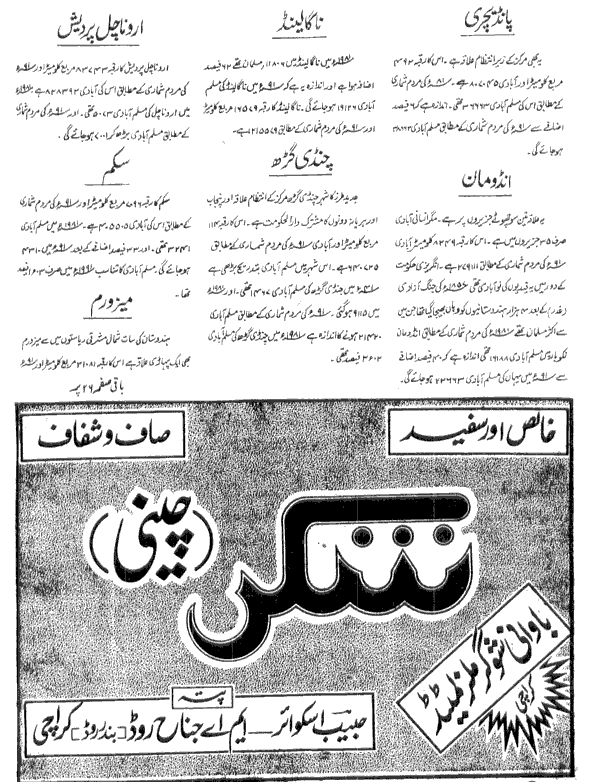 پانڈیچری
یہ بھی مرکز کے زیر انتظام علاقہ ہے۔ اس کا رقبہ ۴۹۲
مربع کلومیٹر اور آبادی ۸۰۷۰۴۵ ہے۔
کی مردم شماری
کے مطابق اس کی مسلم آبادی ۳۶۶۶۳ تھی۔ اندازہ ہے کہ ۶ فیصد
اضافے سے
کی مردم شماری کے مطابق مسلم آبادی
ہو جائے گی۔
انڈومان
یہ علاقہ تین سو چھوٹے جزیروں پر ہے۔ مگر انسانی آبادی
صرف ۳۵ جزیروں میں ہے۔ اس کا رقبہ ۸۲۴۹ کلومیٹر آبادی
کی مردم شماری کے مطابق
ہے۔ انگریزی حکومت
کے دور میں یہ قیدیوں کی نو آبادی تھی
کی جنگ آزادی
کے بعد ۴ ہزار ہندوستانیوں کو وہاں بھیجا گیا تھا جن میں
سے اکثر مسلمان تھے
کی مردم شماری کے مطابق انڈومان
نکوبار میں مسلم آبادی ۱۶۱۸۸ تھی اندازہ ہے کہ ۴۰ فیصد اضافے
سے
میں یہاں کی مسلم آبادی ۲۲۶۶۳ ہو جائے گی۔
ناگالینڈ
میں ناگالینڈ میں ۱۱۸۰۶ مسلمان تھے ۶۲ فیصد
اضافہ ہوا ہے اور اندازہ یہ ہے کہ
میں ناگالینڈ کی مسلم
آبادی ۱۹۱۲۶ ہو جائے گی۔ ناگالینڈ کا رقبہ ۱۶۵۷۹ مربع کلومیٹر
اور
کی مردم شماری کے مطابق ۱۲۱۵۵۷۹ ہے۔
چنڈی گڑھ
جدید طرز کا شہر چنڈی گڑھ مرکز کے انتظام علاقہ اور پنجاب
اور ہریانہ دونوں کا مشترک دارالحکومت ہے۔ اس کا رقبہ ۱۱۴
مربع کلومیٹر اور آبادی
کی مردم شماری کے مطابق
۶۴۰۷۲۵ ہے۔ اس شہر میں مسلم آبادی بتدریج بڑھی ہے
میں چنڈی گڑھ کی مسلم آبادی ۴۴۶۷ تھی۔ اور
میں ۹۱۱۵ ہو گئی۔
کی مردم شماری کے مطابق
۲۱۴۲۰ ہونے کا اندازہ ہے
میں چنڈی گڑھ کی مسلم آبادی
فیصد تھی۔
اروناچل پردیش
اروناچل پردیش کا رقبہ ۸۳۷۴۳ مربع کلومیٹر اور
کی مردم شماری کے مطابق اس کی آبادی ۸۵۸۳۹۲ ہے
میں اروناچل کی مسلم آبادی ۵۰۷۳ تھی۔ اور
کی مردم شماری
کے مطابق مسلم آبادی بڑھ کر
ہو جائے گی۔
سکم
سکم کا رقبہ ۷۰۹۶ مربع کلومیٹر اور
کی مردم شماری
کے مطابق اس کی آبادی ۴۰۵۵۰۵ ہے۔
میں مسلم آبادی
۳۲۴۱ تھی۔ اور ۳۳ فیصد اضافے کے بعد
میں ۴۳۱۰
ہو جائے گی۔ مسلم آبادی کا تناسب
میں صرف
فیصد
تھا۔
میزورم
ہندوستان کی سات شمال مشرقی ریاستوں میں سے میزورم
بھی ایک پہاڑی علاقہ ہے اس کا رقبہ ۲۱۰۸۱ مربع کلومیٹر اور
باقی صفحہ ۲۶ پر
خالص اور سفید
صاف و شفاف
شکر
(چینی)
باوانی شوگر ملز لمیٹڈ
کراچی
پتہ
حبیب اسکوائر — ایم اے جناح روڈ [بندر روڈ] کراچی